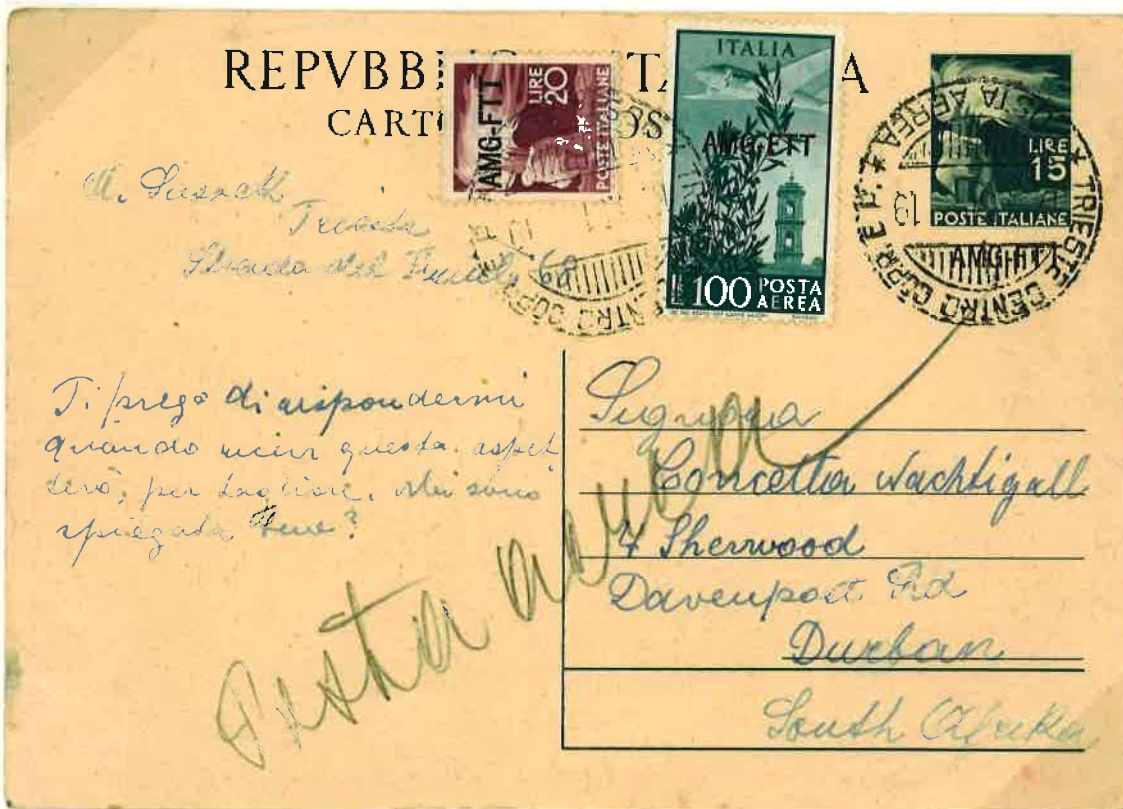 REPVBB TA A
CARTO POS
AMG-FTT
LIRE 20
POSTE ITALIANE
ITALIA
AMG-FTT
LIRE 100 POSTA AEREA
LIRE 15
POSTE ITALIANE
AMG-FTT
TRIESTE CENTRO CORR. E.P.
POSTA AEREA
19
Trieste
Strada del Friuli 68
Ti prego di rispondermi
quando ricevi questa. aspet
terò, per tagliare. Mi sono
spiegata bene?
Posta aerea
Signora
Concetta Nachtigall
7 Sherwood
Davenport Rd
Durban
South Afrika